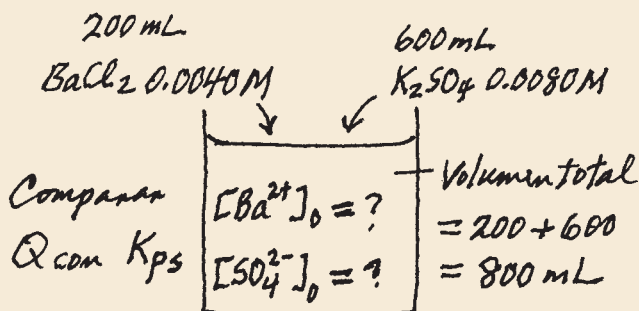 200 mL
BaCl2 0.0040M
600 mL
K2SO4 0.0080M
Comparar
Q con Kps
[Ba2+]0 = ?
[SO4 2-]0 = ?
Volumen total
= 200 + 600
= 800 mL